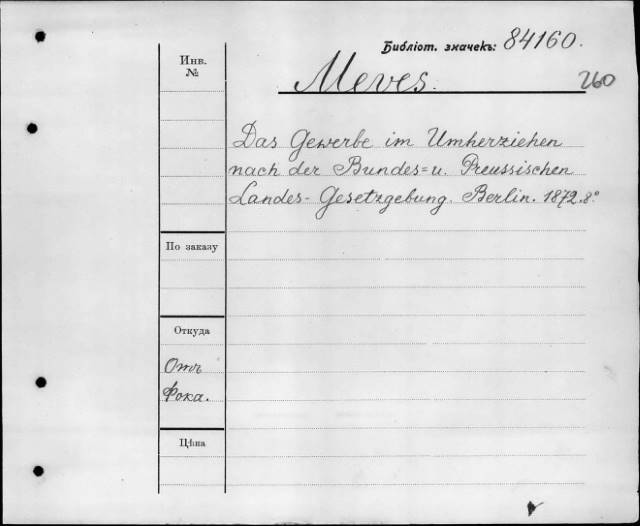 Библіот. значекъ: 84160.
Инв.
№
Meves.
260
Das Gewerbe im Umherziehen
nach der Bundes= u. Preussischen
Landes- Gesetzgebung. Berlin. 1872. 8.°
По заказу
Откуда
Отъ
Фока.
Цѣна